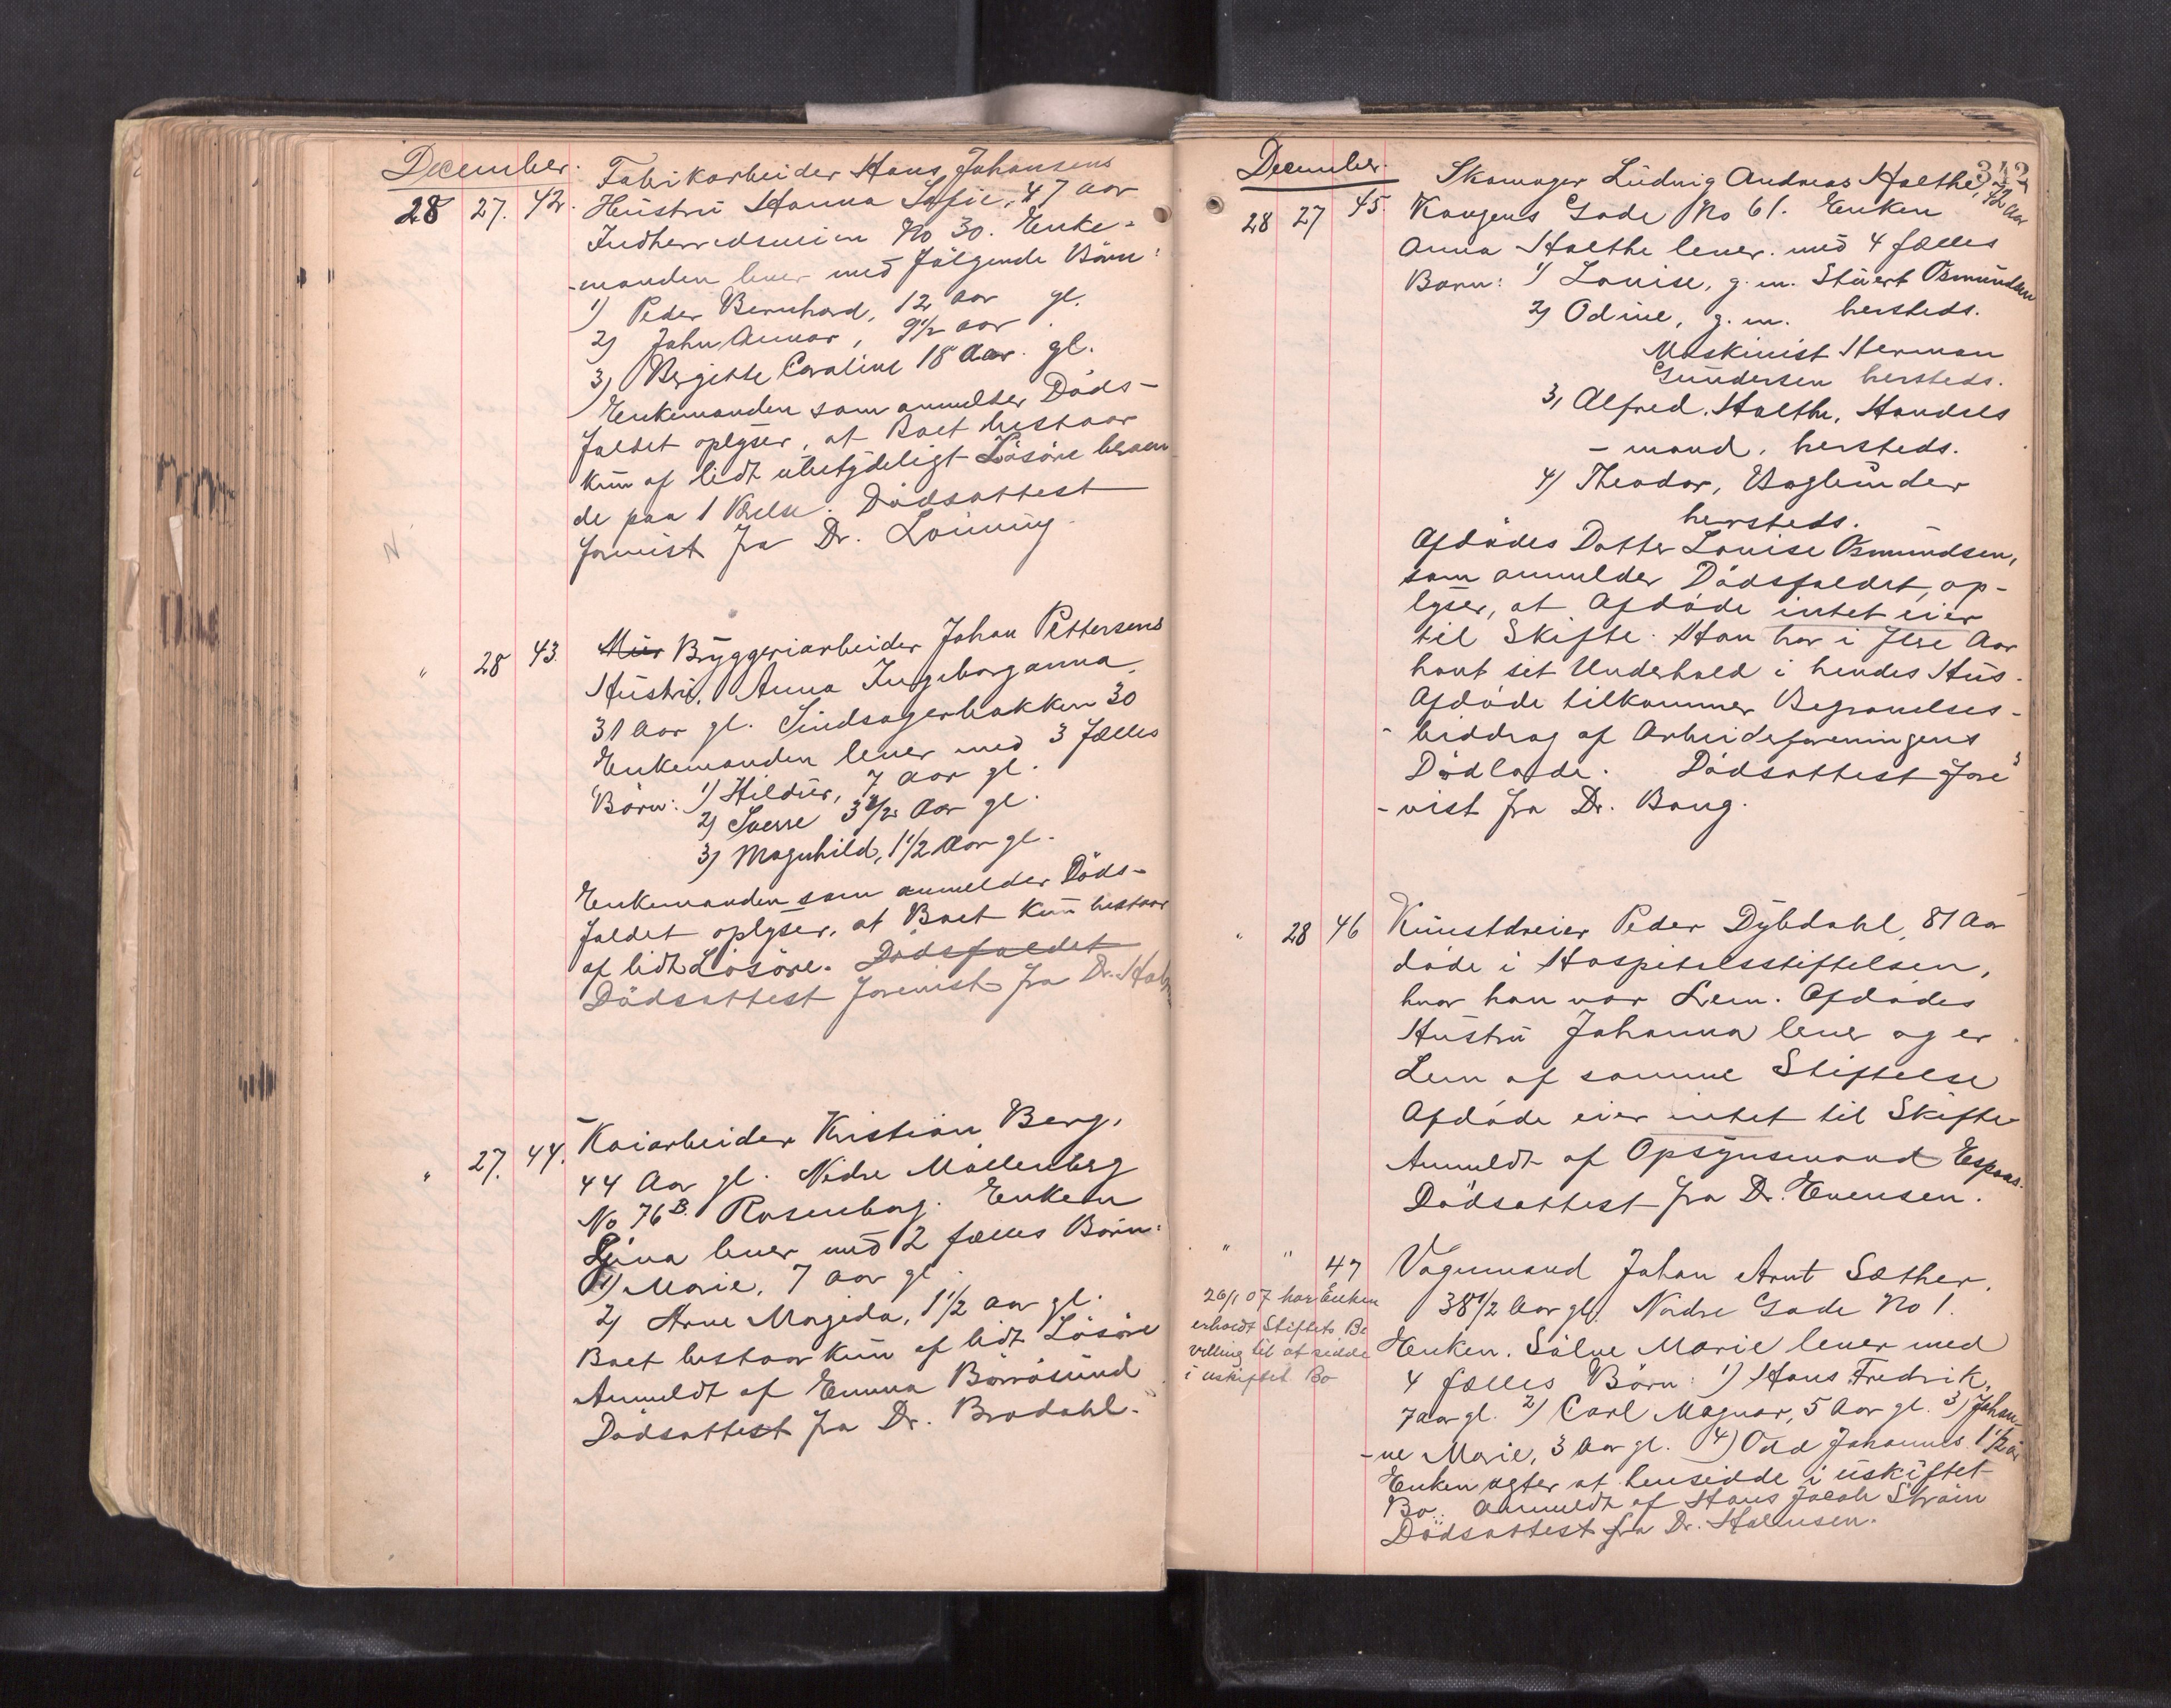 December.
28 27. 42. Fabrikarbeider Hans Johansens
Hustru Hanna Sofie, 47 aar
Indherredsveien No 30. Enke-
-manden lever med følgende Börn:
1) Peder Bernhard, 12 aar gl.
2) John Annar, 9 1/2 aar
3) Bergitte Caroline 18 Aar. gl.
Enkemanden som anmelder Döds-
faldet oplyser, at Boet bestaar
kun af lidt ubetydeligt Lösöre beroen
de paa 1 Værelse. Dödsattest
forevist fra Dr. Lönning.
" 28 43. Mur Bryggeriarbeider Johan Pettersens
Hustru, Anna Ingeborganna,
31 Aar gl. Sindsagerbakken 30
Enkemanden lever med 3 fælles
Börn: 1) Hildur, 7 aar gl.
2) Sverre 3 1/2 Aar gl.
3) Magnhild, 1 1/2 Aar gl.
Enkemanden som anmelder Döds-
faldet oplyser, at Boet kun bestaar
af lidt Lösöre. Dödsfaldet
Dödsattest forevist fra Dr.
" 27. 44. Kaiarbeider Kristian Berg,
44 Aar gl. Nedre Möllenberg
No 76B. Rosenborg. Enken
lever med 2 fælles Börn:
1) Marie, 7 aar gl.
2) Arne Magida, 1 1/2 aar gl.
Boet bestaar kun af lidt Lösöre
Anmeldt af Emma Börrösund
Dödsattest fra Dr. Brodahl.
342
December.
28 27 45. Skomager Ludvig Andreas Holthe, 72 Aar
Kongens Gade No 61. Enken
Anna Holthe lever med 4 fælles
Børn: 1) Louise, g. m. Stuert Osmundsen
hersteds.
2) Odine, g. m.
Maskinist Herman
Gundersen hersteds.
3, Alfred Holthe, Handels
-mand, hersteds.
4) Theodor, Uaglünder
hersteds.
Afdödes Datter Louise Osmundsen,
som anmelder Dödsfaldet, op-
lyser, at Afdöde intet eier
til Skifte. Han har i flere Aar
havt sit Underhold i hendes Hus.
Afdöde tilkommer Begravelses-
-bidrag af Arbeiderforeningens
Dödlade. Dödsattest fore
-vist fra Dr. Bang.
" 28 46 Kunstdreier Peder Dybdahl, 81 Aar
döde i Hospitalsstiftelsen,
hvor han var Lem. Afdödes
Hustru Johanna lever og er
Lem af samme Stiftelse
Afdöde eier intet til Skifte
Anmeldt af Opsynsmand Espaas.
Dödsattest fra Dr. Evensen.
" " 47 Vognmand Johan Arnt Sæther,
38 1/2 Aar gl. Nordre Gade No 1.
26/1 07 har Enken
erholdt Stiftets Be
villing til at sidde
i uskiftet Bo
Enken. Sölve Marie lever med
4 fælles Börn: 1) Hans Fredrik,
7 aar gl. 2) Carl Magnar, 5 Aar gl. 3) Johan-
-ne Marie, 3 Aar gl. 4) Odd Johannes 1 1/2 år
Enken agter at hensidde i uskiftet
Bo. Anmeldt af Hans Jacob Ström
Dödsattest fra Dr. Halmsen.